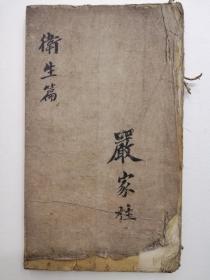 衛生篇
嚴家柱